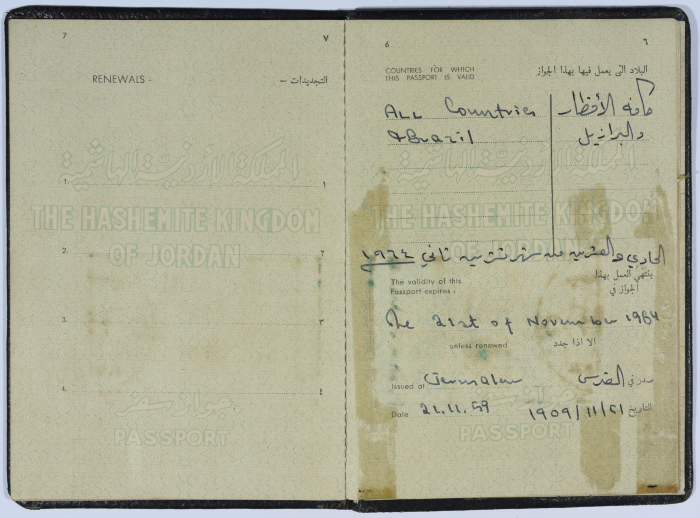 7
٧
RENEWALS -
التجديدات -
المملكة الأردنية الهاشمية
THE HASHEMITE KINGDOM
OF JORDAN
1.
١
2.
٢
3.
٣
4.
٤
جواز سفر
PASSPORT
6
٦
COUNTRIES FOR WHICH
THIS PASSPORT IS VALID
البلاد التي يعمل فيها بهذا الجواز
ALL Countries
كافة الأقطار
&Brazil
والبرازيل
THE HASHEMITE KINGDOM
OF JORDAN
الحادي والعشرين من شهر تشرين ثاني ١٩٦٤
The validity of this
Passport expires :
ينتهي العمل بهذا
الجواز في
The 21st of November 1964
unless renewed
الا اذا جدد
Issued at Jerusalem
صدر في القدس
Date 21.11.59
التاريخ ١٩٥٩/١١/٢١
جواز سفر
PASSPORT